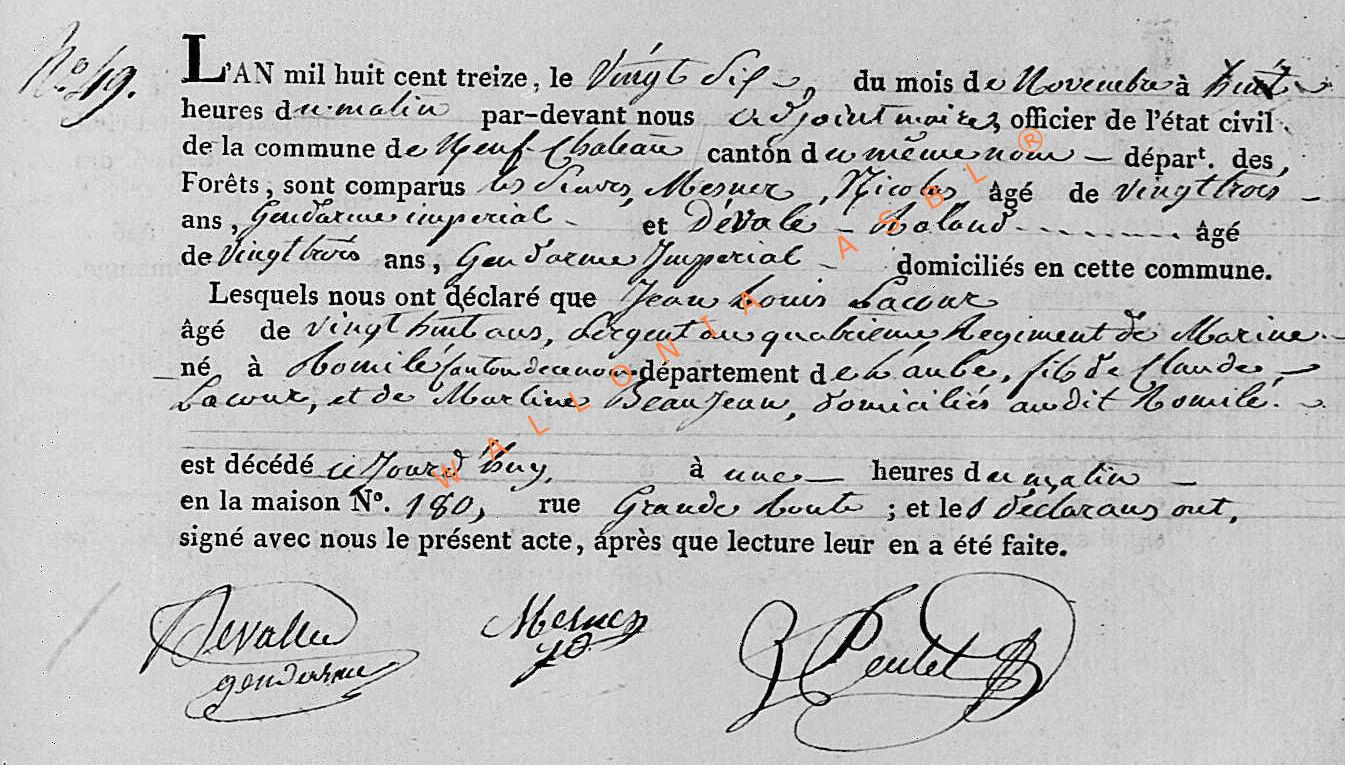 N.° 49.
L'AN mil huit cent treize, le Vingt Six, du mois de Novembre à huit
heures du matin par-devant nous adjoint maire, officier de l'état civil
de la commune de Neuf-Chateau canton du même nom – départ. des
Forêts, sont comparus les Sieurs Mesner, Nicolas âgé de Vingt trois
ans, Gendarme imperial et Dévale – Roland âgé
de Vingt trois ans, Gendarme Imperial – domiciliés en cette commune.
Lesquels nous ont déclaré que Jean Louis Lacour
âgé de vingt huit ans, Sergent au quatrieme Regiment de Marine
né à Romilé canton de ce nom département de L'aube, fils de Claude
Lacour, et de Martine BeauJean, domiciliés audit Romilé.
est décédé ce Jourd'huy, à une heures du matin –
en la maison N°. 180, rue Grande Route ; et les déclarans ont,
signé avec nous le présent acte, après que lecture leur en a été faite.
Devalle Mesner
gendarme
WALLONIA ASBL ®